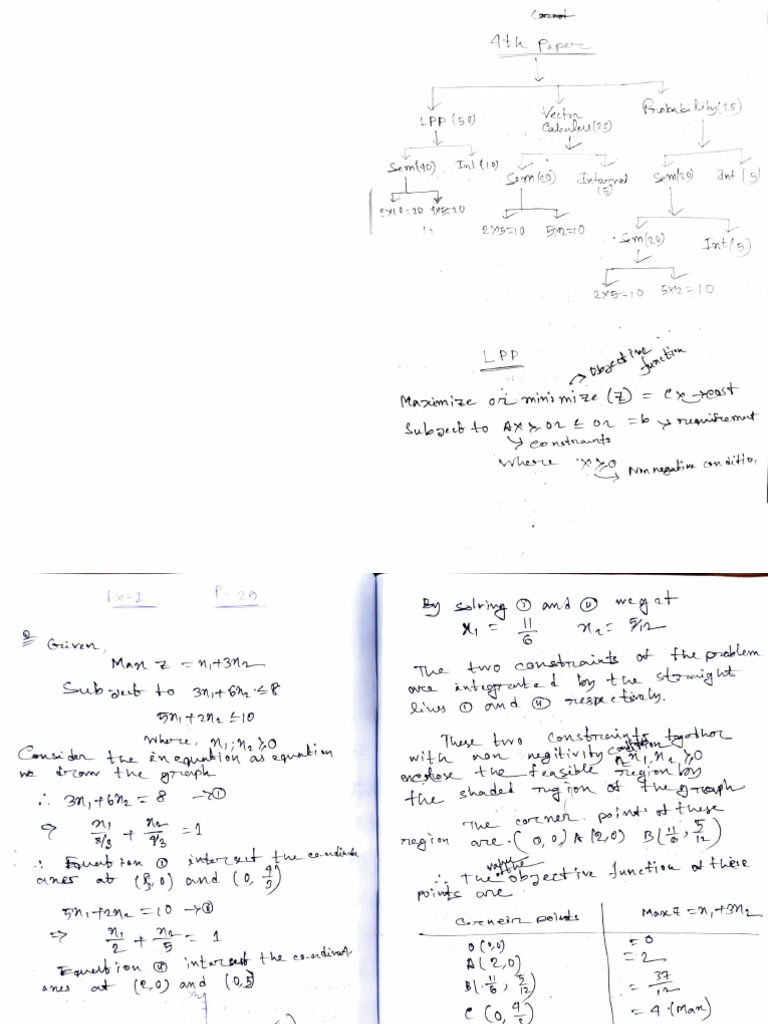 4th Paper
LPP (50) Vector Calculus (25) Probability (25)
Sem (40) Int (10) Sem (20) Intergral (5) Sem (20) Int (5)
2x10=20 4x5=20 2x5=10 5x2=10 Sem (20) Int (5)
2x5=10 5x2=10
LPP
Objective function
Maximize or minimize (Z) = cx → cost
Subject to Ax ≥ or ≤ or = b → requirement
→ constraints
Where x ≥ 0
Non negative conditio
Ex-1 P-29
2 Given,
Max Z = x₁+3x₂
Subject to 3x₁+6x₂ ≤ 8
5x₁+2x₂ ≤ 10
Where, x₁, x₂ ≥ 0
Consider the inequation as equation
we draw the graph
∴ 3x₁+6x₂ = 8 → ①
⇒ x₁/8/3 + x₂/4/3 = 1
∴ Equation ① intersect the co-ordinate
axes at (8/3, 0) and (0, 4/3)
5x₁+2x₂ = 10 → ⑪
⇒ x₁/2 + x₂/5 = 1
Equation ⑪ intersect the co-ordinat
axes at (2,0) and (0,5)
By solving ① and ⑪ we get
x₁ = 11/6 x₂ = 5/12
The two constraints of the problem
are integrated by the straight
lines ① and ⑪ respectively.
These two constraints together
with non negitivity condition x₁, x₂ ≥ 0
enclose the feasible region by
the shaded region of the graph
The corner points of these
region are (0,0) A(2,0) B(11/6, 5/12)
∴ The value of the objective function at these
points are
Corner points Max Z = x₁+3x₂
O(0,0) = 0
A(2,0) = 2
B(11/6, 5/12) = 37/12
C(0, 4/3) = 4 (Max)